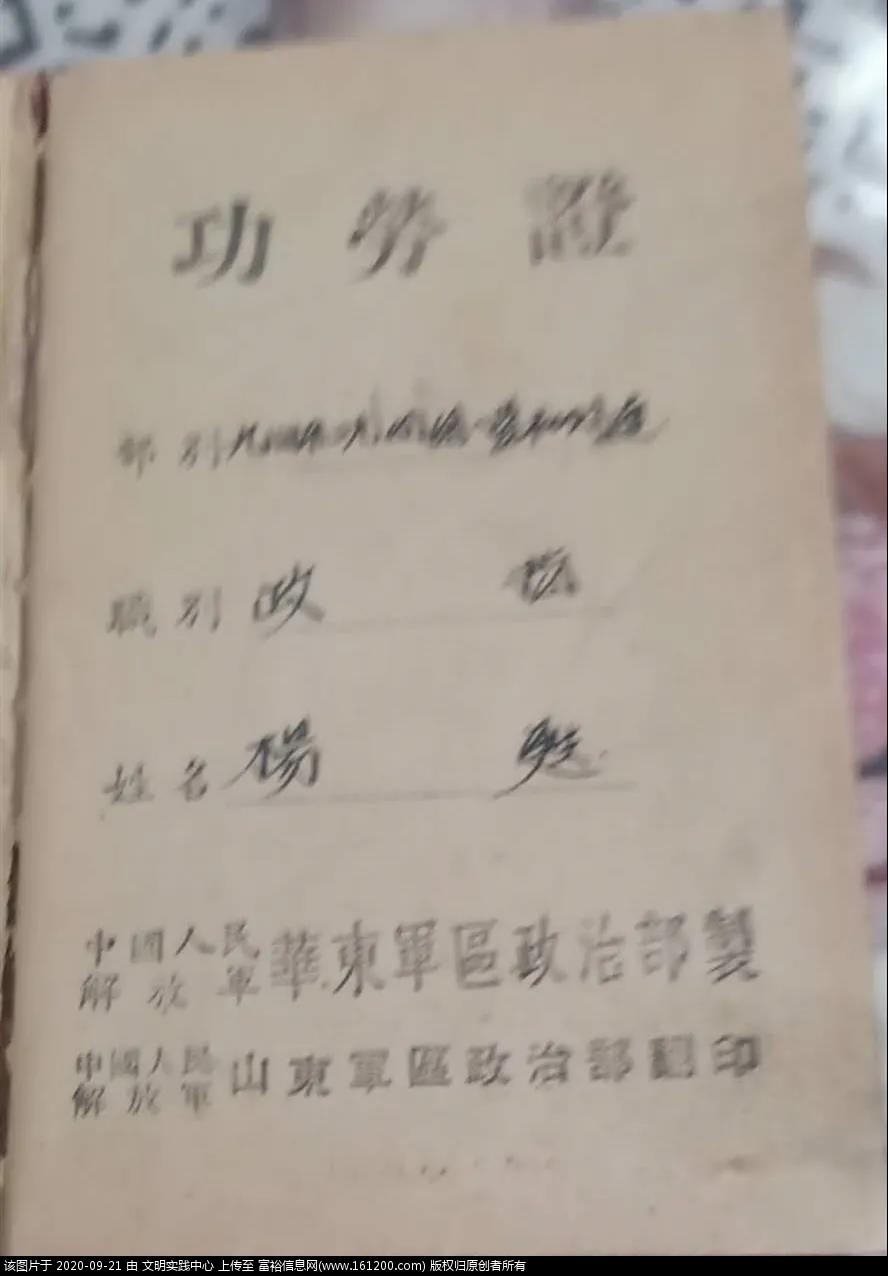 功勞證
部別
職別 政
姓名 楊
中國人民解放軍 華東軍區政治部製
中國人民解放軍 山東軍區政治部翻印
该图片于 2020-09-21 由 文明实践中心 上传至 富裕信息网(www.161200.com) 版权归原创者所有